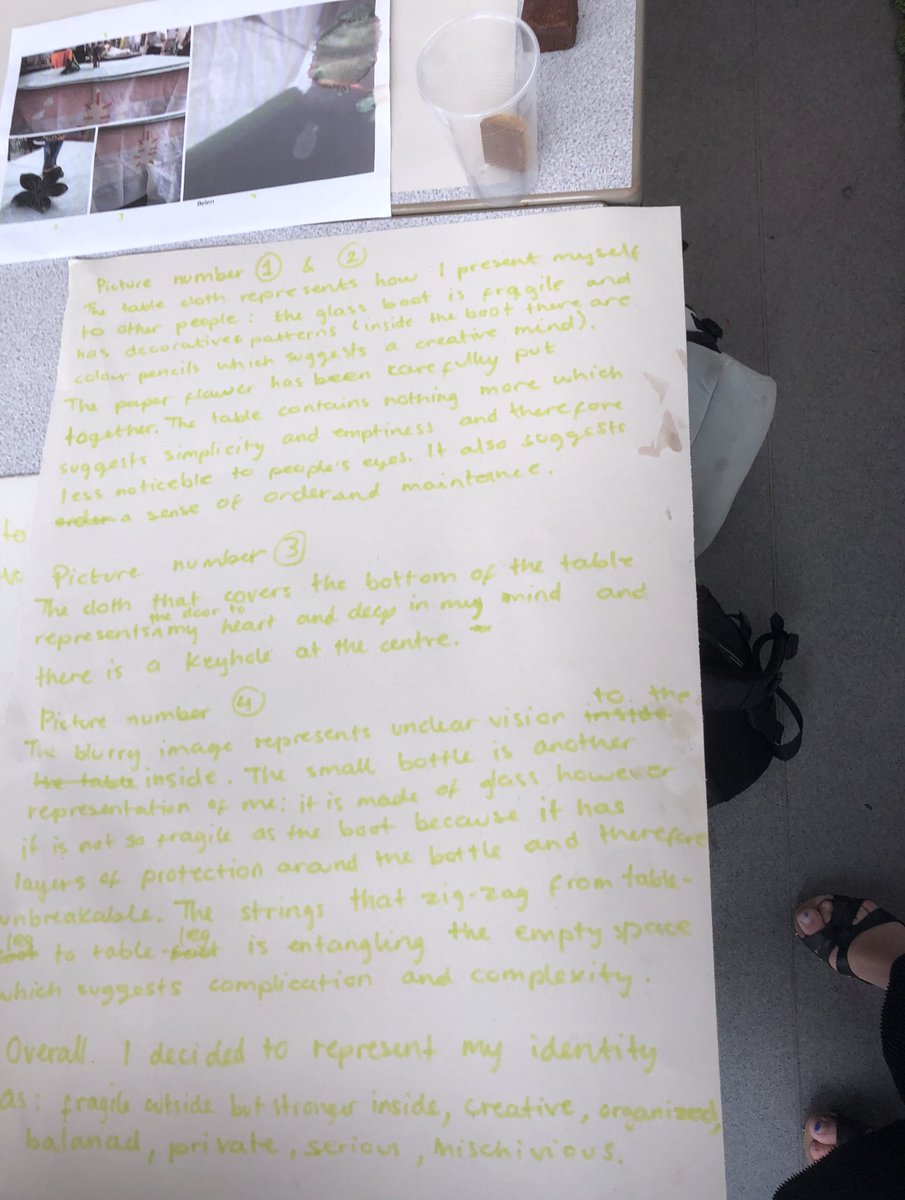 Belen
2
3
4
Picture number 1 & 2
The table cloth represents how I present myself
to other people: the glass boot is fragile and
has decoratives patterns (inside the boot there are
colour pencils which suggests a creative mind).
The paper flower has been carefully put
together. The table contains nothing more which
suggests simplicity and emptiness and therefore
less noticeble to people's eyes. It also suggests
order a sense of order and maintance.
to
Picture number 3
The cloth that covers the bottom of the table
represents the door to my heart and deep in my mind and
there is a keyhole at the centre.
Picture number 4
The blurry image represents unclear vision inside to the
the table inside. The small bottle is another
representation of me: it is made of glass however
it is not so fragile as the boot because it has
layers of protection around the bottle and therefore
unbreakable. The strings that zig-zag from table-
leg to table-leg is entangling the empty space
which suggests complication and complexity.
Overall. I decided to represent my identity
as: fragile outside but stronger inside, creative, organized,
balanad, private, serious, mischivious.